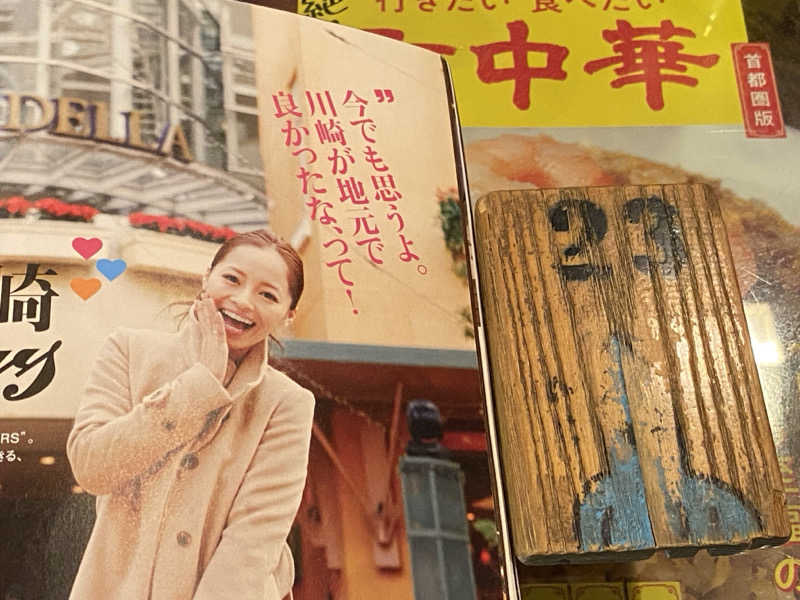 DELLA
〝今でも思うよ。
川崎が地元で
良かったな、って！
崎
RS”。
きる、
行きたい 食べたい
中華
首都圏版
23
の